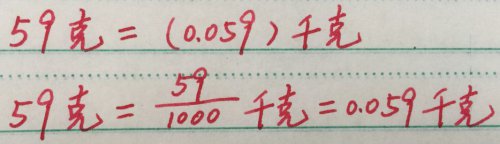 59克=(0.059)千克
59克=59/1000千克=0.059千克